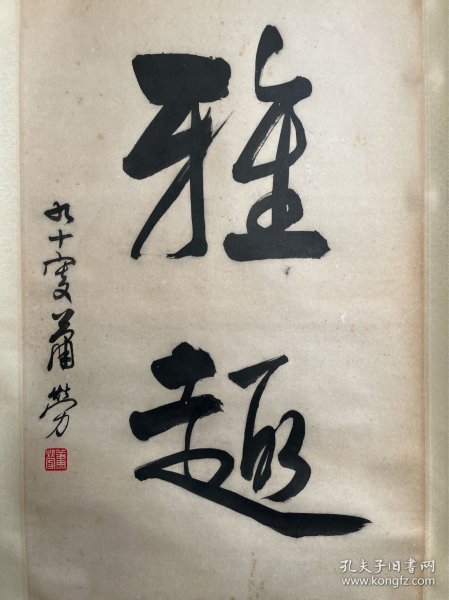 雅趣
九十叟萧劳
孔夫子旧书网
www.kongfz.com